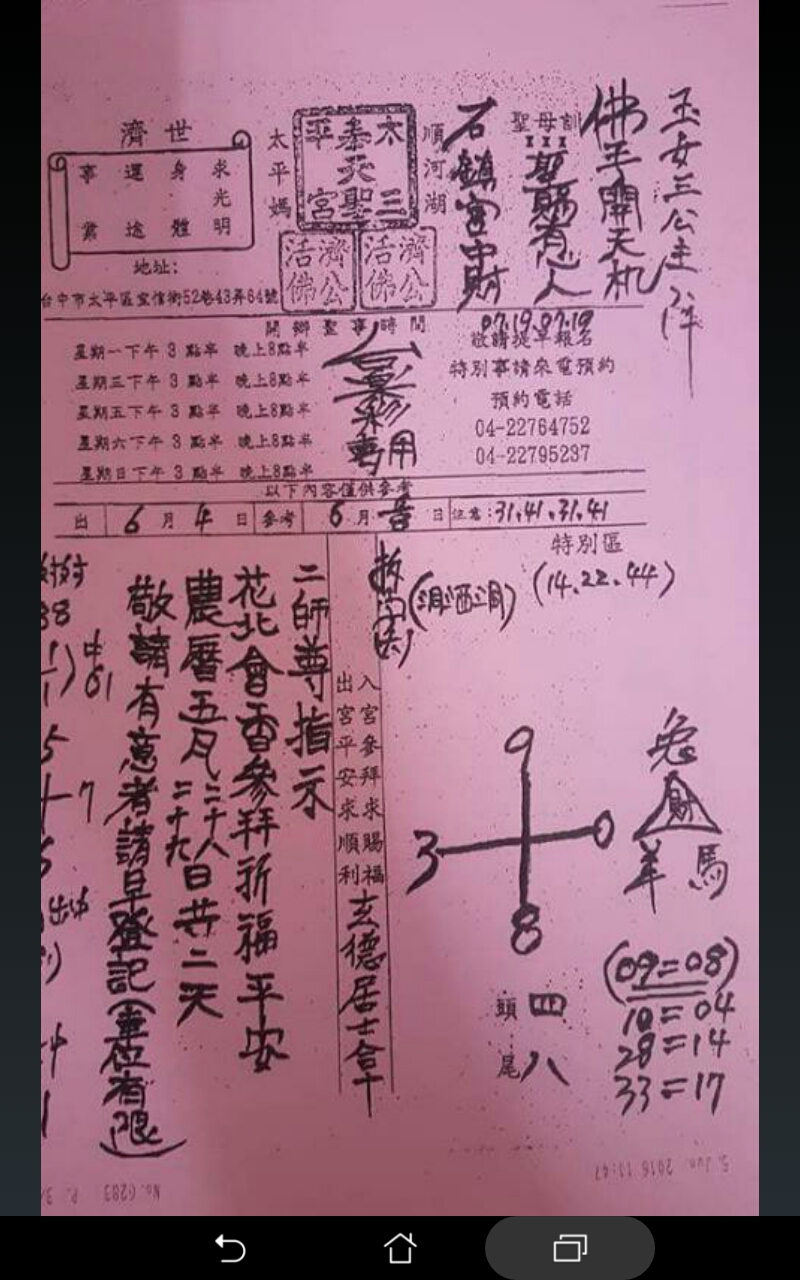 玉女三公主降
佛手開天机
聖母訓
聖賜有急人
石鎮宮中財
07.19.07.19
順河湖
太平媽
太三
泰天聖
平宮
濟公活佛
濟公活佛
濟世
求光明
身體
運途
事業
地址:
台中市太平區宜信街52巷43弄64號
開鄉聖事時間
星期一下午 3 點半 晚上8點半
星期三下午 3 點半 晚上8點半
星期五下午 3 點半 晚上8點半
星期六下午 3 點半 晚上8點半
星期日下午 3 點半 晚上8點半
台彩專用
敬請提早報名
特別事請來電預約
預約電話
04-22764752
04-22795237
以下內容僅供參考
出 6 月 4 日 參考 6 月 日 注意:31.41.31.41
特別區
(14.22.44)
兔
財
羊 馬
9
3 0
8
頭 四
尾 八
(09=08)
10=04
28=14
33=17
入宮參拜求賜福
出宮平安求順利
玄德居士合十
二師尊指示
花北會香參拜祈福平安
農曆五月二十八二十九日共二天
敬請有意者請早登記(車位有限)
5. Jun. 2016 11:47
No. 6283 P. 3